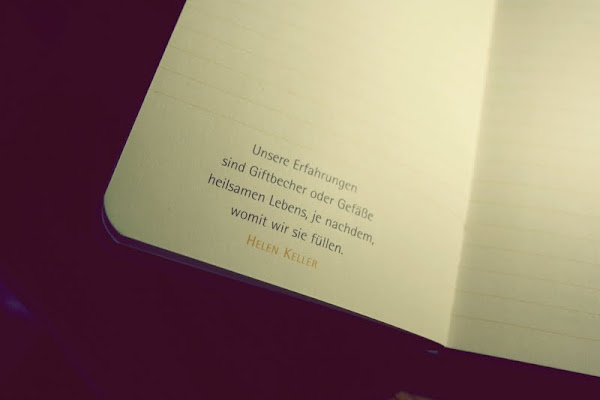 Unsere Erfahrungen
sind Giftbecher oder Gefäße
heilsamen Lebens, je nachdem,
womit wir sie füllen.
HELEN KELLER